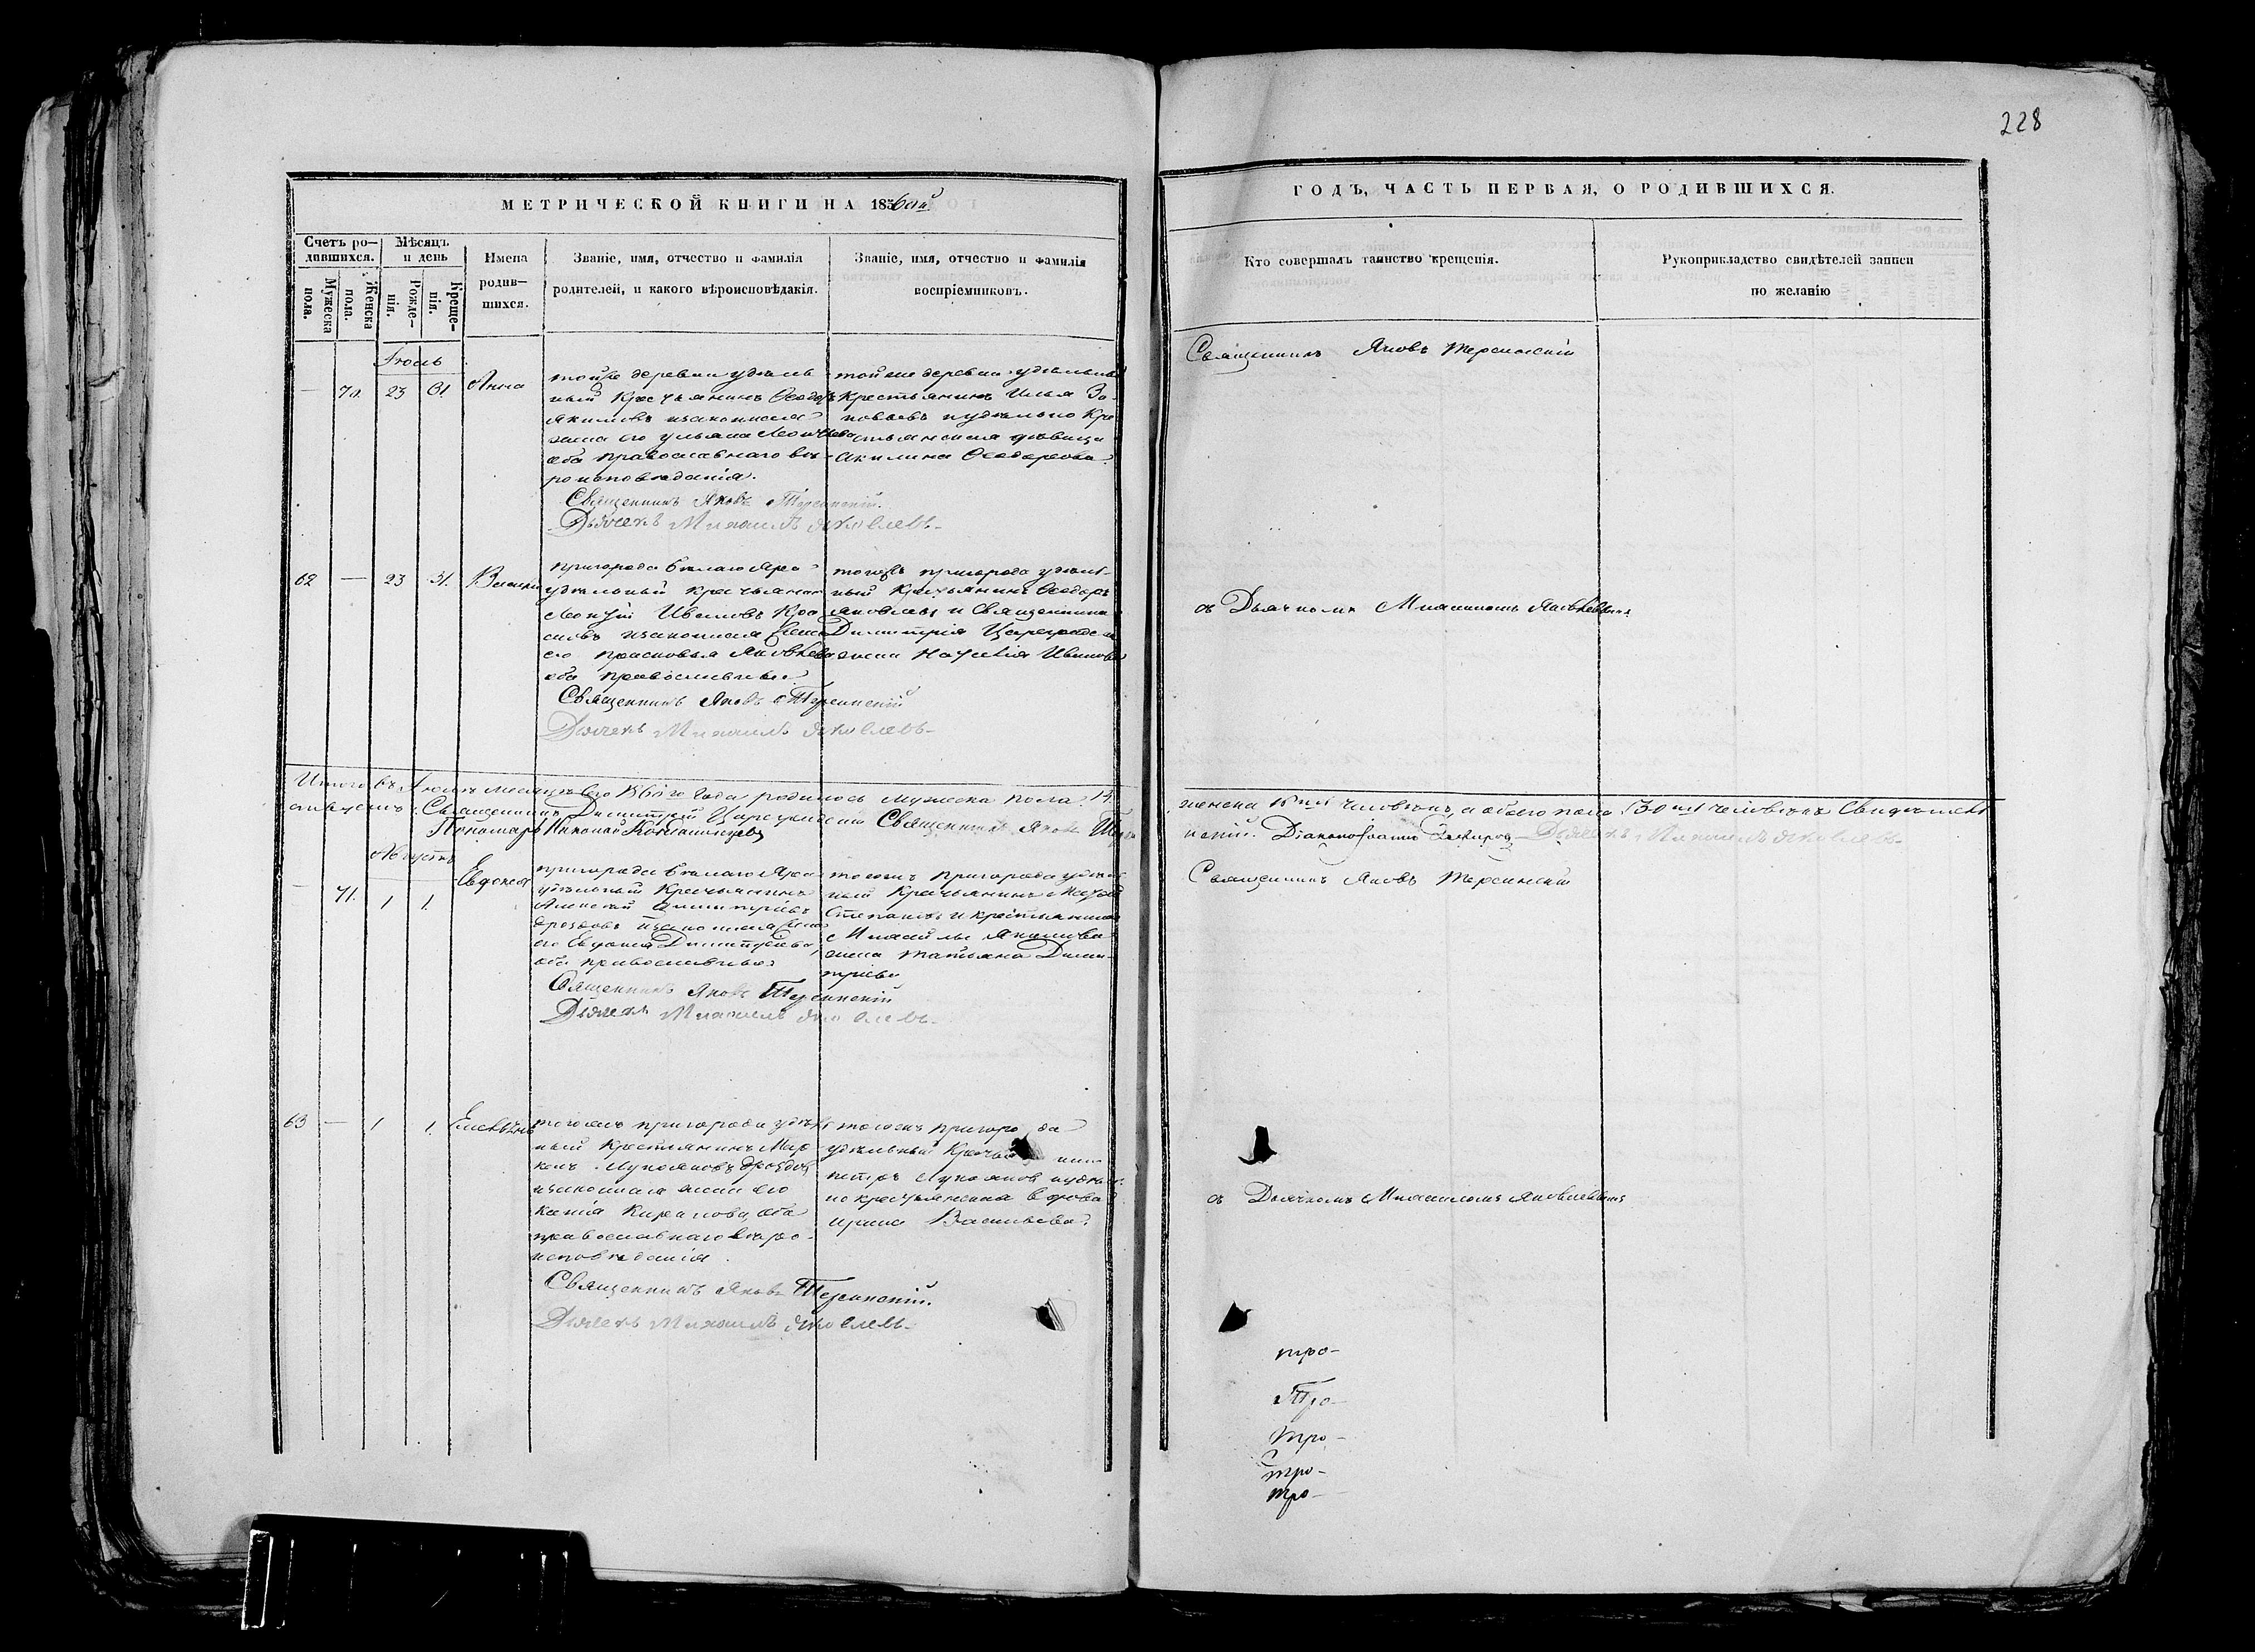 228
МЕТРИЧЕСКОЙ КНИГИ НА 1860й
ГОДЪ, ЧАСТЬ ПЕРВАЯ, О РОДИВШИХСЯ.
Счетъ родившихся.
Мужеска пола.
Женска пола.
Мѣсяцъ и день
Рожденія.
Крещенія.
Имена родившихся.
Званіе, имя, отчество и фамилія
родителей, и какого вѣроисповѣданія.
Званіе, имя, отчество и фамилія
воспріемниковъ.
Кто совершалъ таинство крещенія.
Рукоприкладство свидѣтелей записи
по желанію
Іюль
— 70. 23 31 Анна
тойже деревни удѣль
ный Крестьянинъ Ѳеодоръ
Якимовъ изаконная
жена его ульяна Леонтьева
оба православнаго вѣ-
роисповѣданія.
Священникъ Яковъ Терсинскій.
Дьячекъ Михаилъ Яковлевъ.
тойже деревни удѣльный
Крестьянинъ Илья
иудѣльно Кре
стьянская дѣвица
Акилина Ѳеодорова.
Священникъ Яковъ Терсинскій
62 — 23 31. Василій
пригорода Бѣлаго Яра
удѣльный крестьянинъ
Леонтій Ивановъ
изаконная жена
его прасковья Яковлева
оба православные
Священникъ Яковъ Терсинскій
Дьячекъ Михаилъ Яковлевъ.
тогожъ пригорода удѣль-
ный Крестьянинъ Ѳеодоръ
Яковлевъ и Священника
Димитрія Цареградскаго
жена Наталія Иванова
съ Дьячкомъ Михаиломъ Яковлевымъ
Итого въ Іюлѣ месяцѣ сего 1860го года родилось мужеска пола 14.
женска 16 человѣкъ, а обоего пола 30 человѣкъ
Священникъ Димитрій Цареградскій Священникъ Яковъ
Пономарь Николай
Дьячекъ Михаилъ Яковлевъ.
Августъ
— 71. 1 1. Евдокія
пригорода Бѣлаго Яра
удѣльный Крестьянинъ
Алексѣй Димитріевъ
дроздовъ изаконная жена
его Евдокія Димитріева,
оба православные
Священникъ Яковъ Терсинскій
Дьячекъ Михаилъ Яковлевъ.
тогожъ пригорода удѣль
ный Крестьянинъ
Степановъ и крестьянина
Михаилы Якимова
жена татьяна Дими-
тріева
Священникъ Яковъ Терсинскій
63 — 1 1.
тогожъ пригорода удѣль
ный Крестьянинъ Мар
келъ Лукояновъ дроздовъ
изаконная жена его
оба
православнаго вѣро-
исповѣданія.
Священникъ Яковъ Терсинскій.
Дьячекъ Михаилъ Яковлевъ.
тогожъ пригорода
удѣльный
петръ Лукояновъ иудѣль
но крестьянская вдова
ирина Васильева.
съ Дьячкомъ Михаиломъ Яковлевымъ
тро-
Тро-
тро-
тро-
тро-